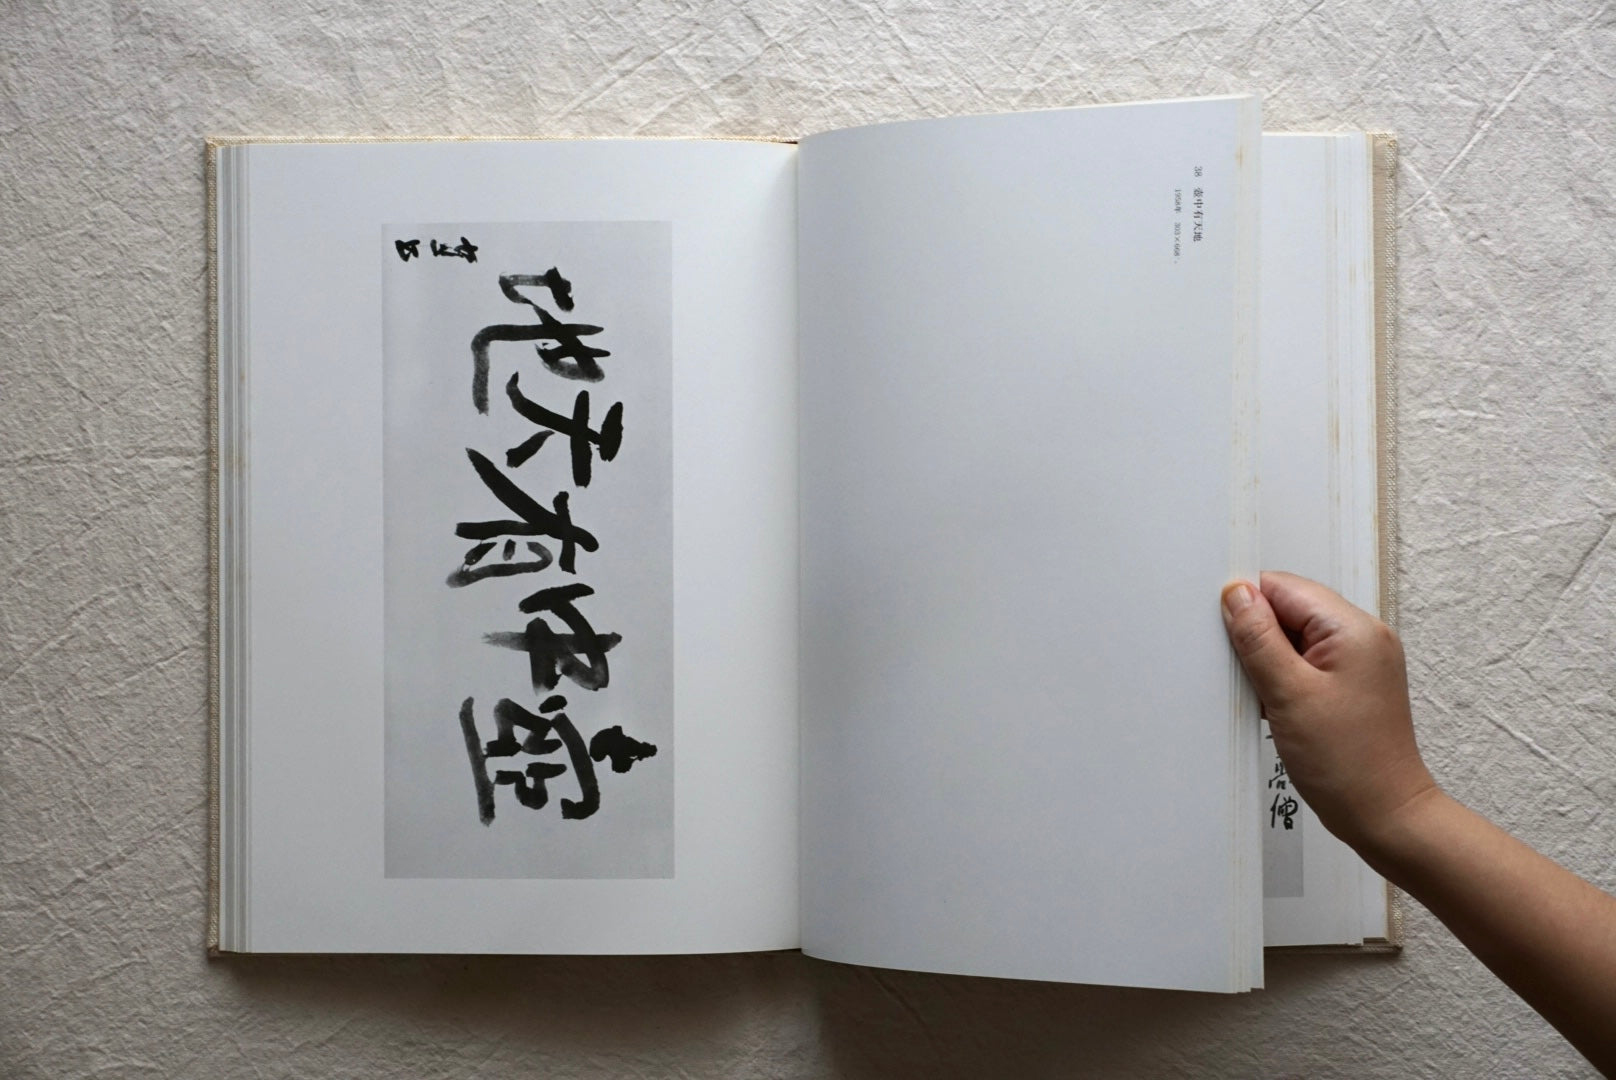 壺中有天地
38 壺中有天地
1958年 303×668
僧